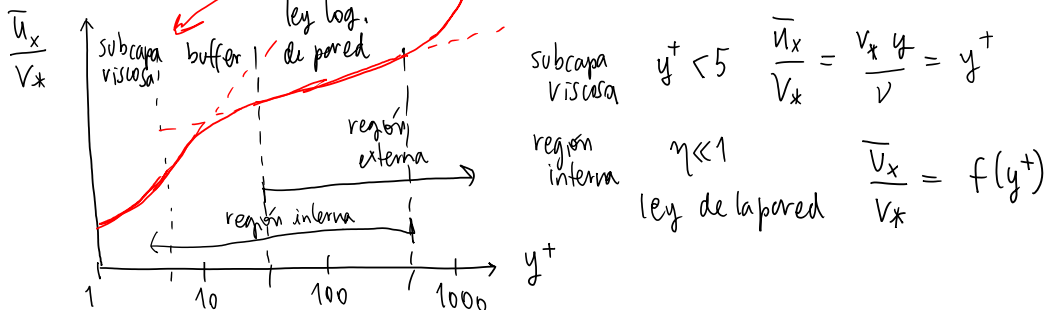 u̅ₓ / V*
subcapa viscosa
buffer
ley log. de pared
región externa
región interna
1 10 100 1000
y⁺
subcapa viscosa y⁺ < 5 u̅ₓ / V* = v* y / ν = y⁺
región interna η ≪ 1
ley de la pared U̅ₓ / V* = f(y⁺)